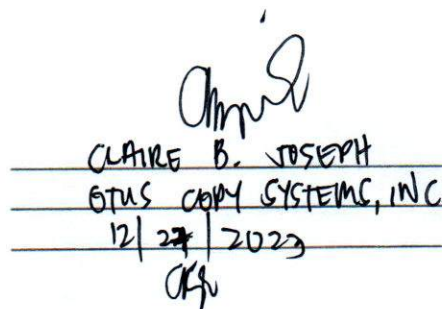 CLAIRE B. JOSEPH
OTUS COPY SYSTEMS, INC
12/27/2023